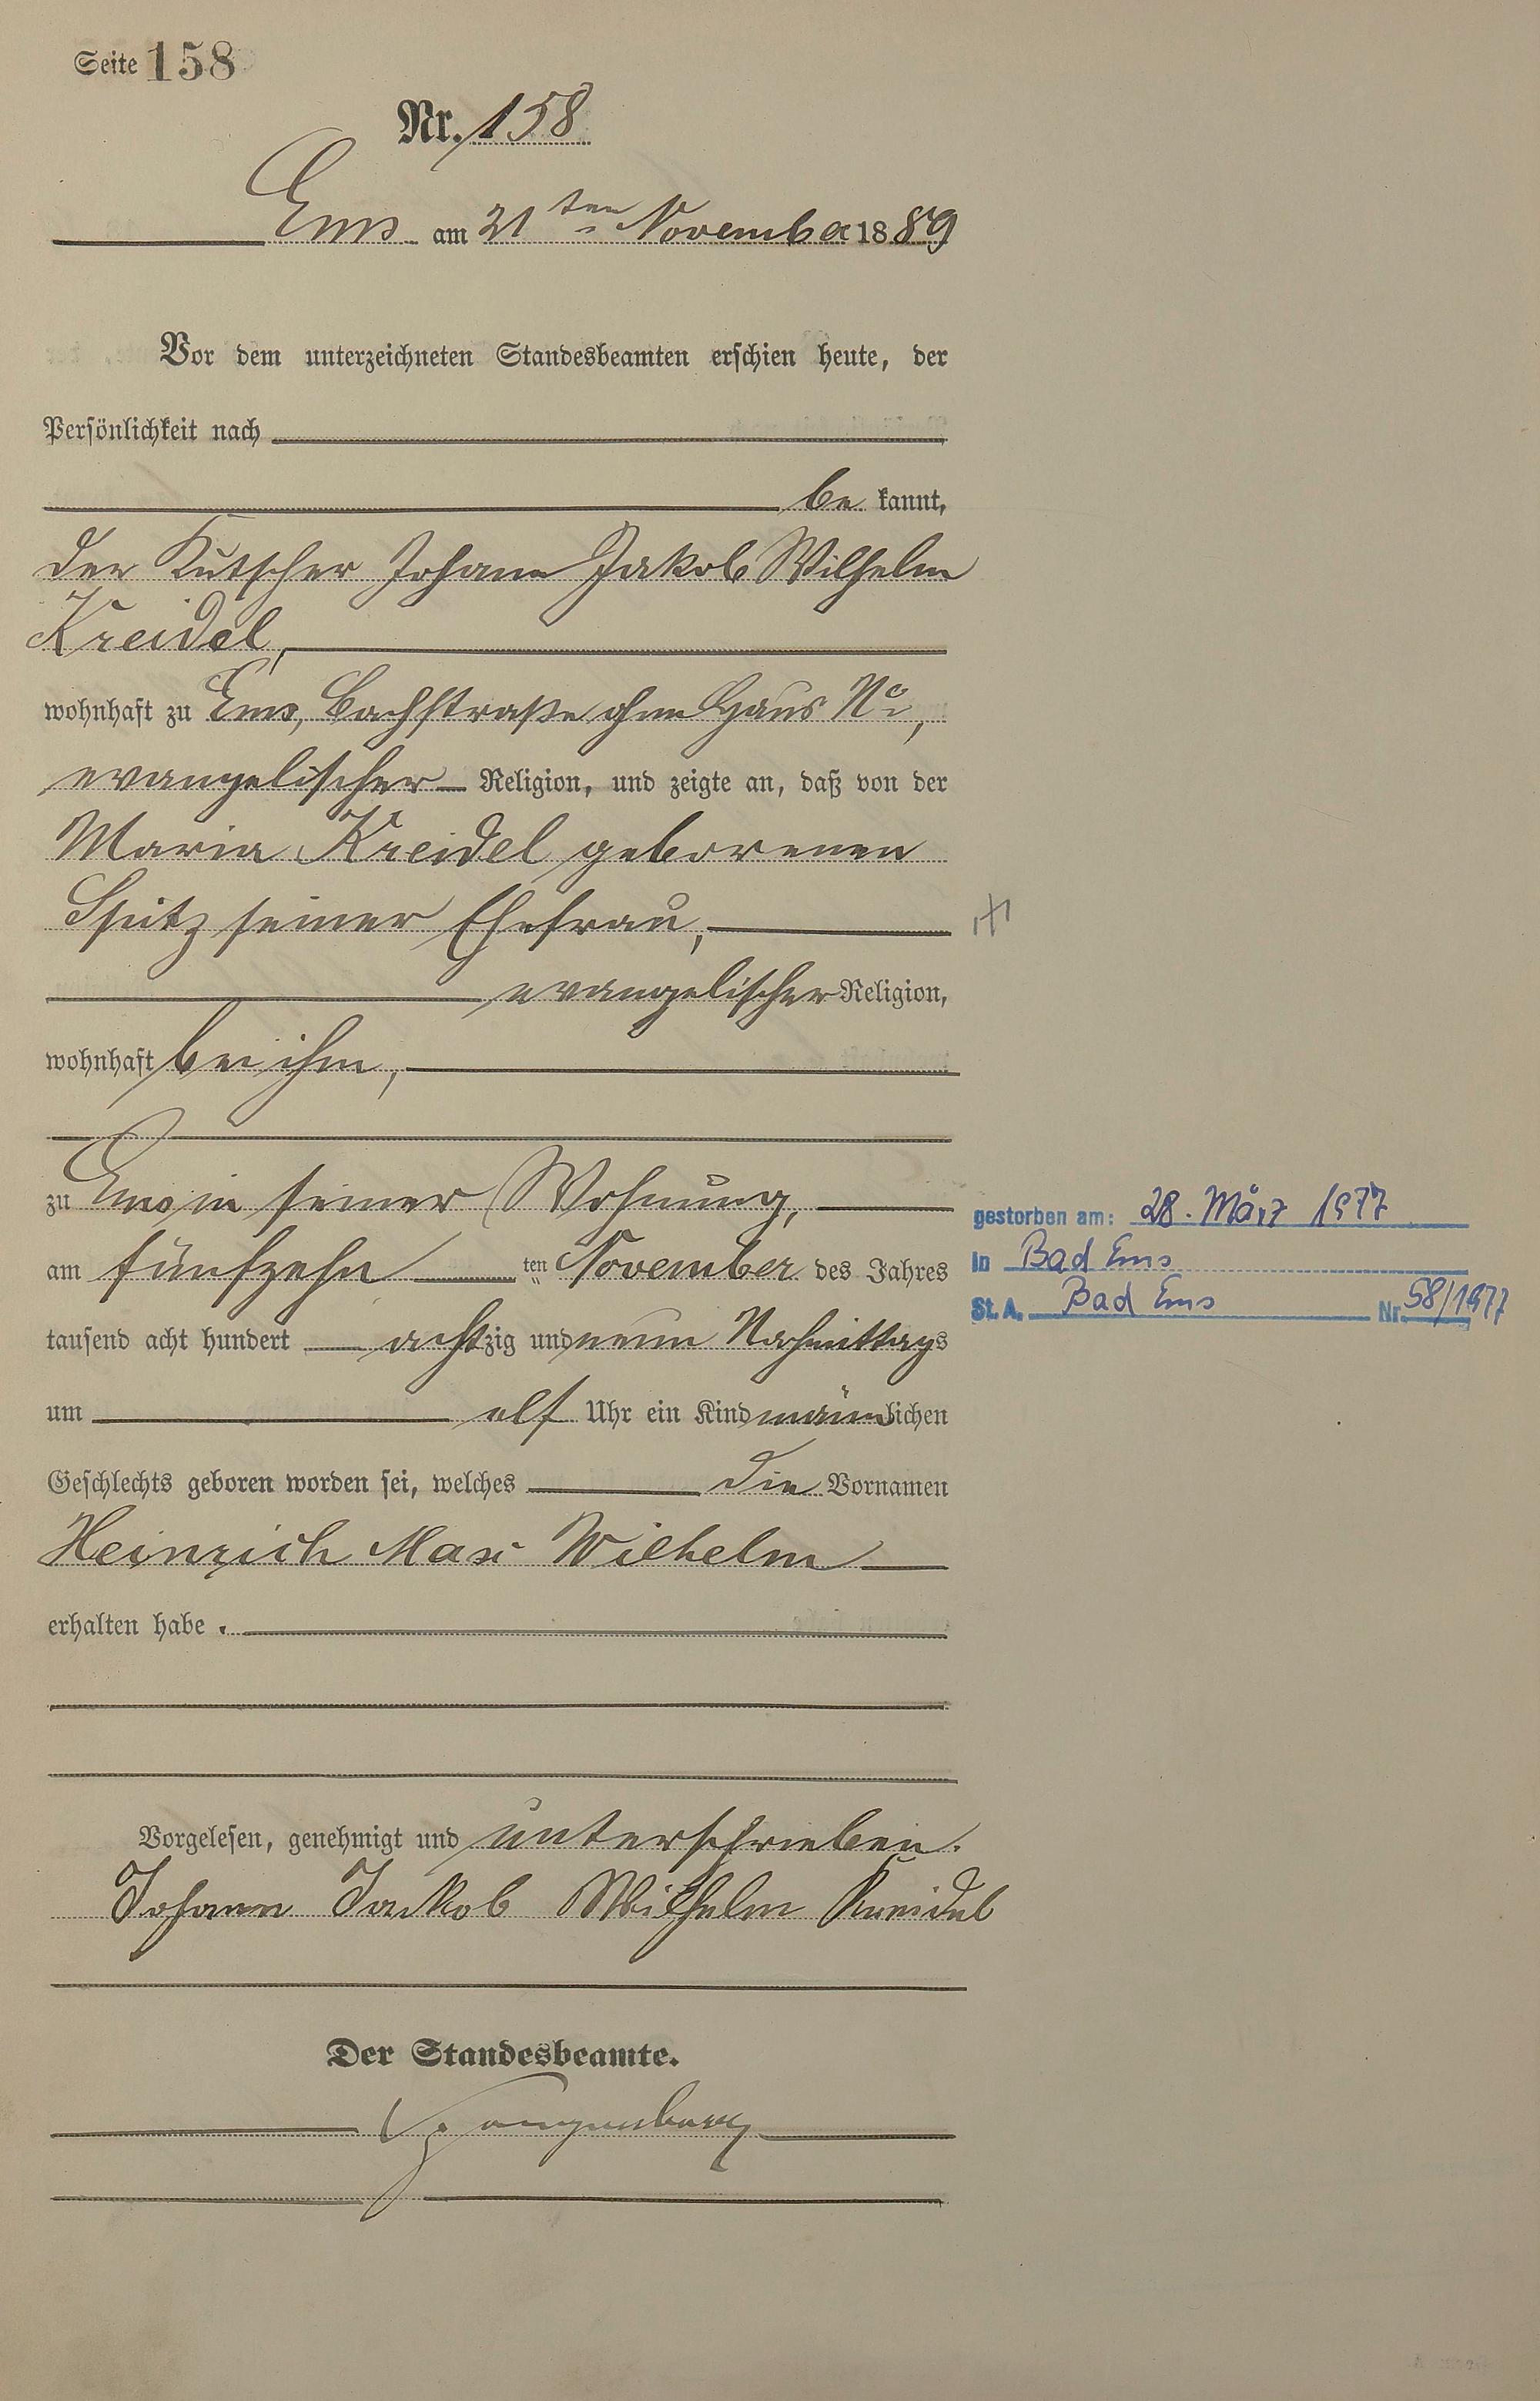 Seite 158
Nr. 158
Ems am 21ten November 1889
Vor dem unterzeichneten Standesbeamten erschien heute, der
Persönlichkeit nach
be kannt,
der Kutscher Johann Jakob Wilhelm
Kreidel,
wohnhaft zu Ems, Bachstraße ohne Haus No,
evangelischer Religion, und zeigte an, daß von der
Maria Kreidel geborenen
Spitz seiner Ehefrau,
evangelischer Religion,
wohnhaft bei ihm,
zu Ems in seiner Wohnung,
am fünfzehn ten November des Jahres
tausend acht hundert achtzig und neun Nachmittags
um elf Uhr ein Kind männlichen
Geschlechts geboren worden sei, welches die Vornamen
Heinrich Max Wilhelm
erhalten habe.
Vorgelesen, genehmigt und unterschrieben.
Johann Jackob Wilhelm Kreidel
Der Standesbeamte.
gestorben am: 28. März 1977
in Bad Ems
St. A. Bad Ems Nr. 58/1977